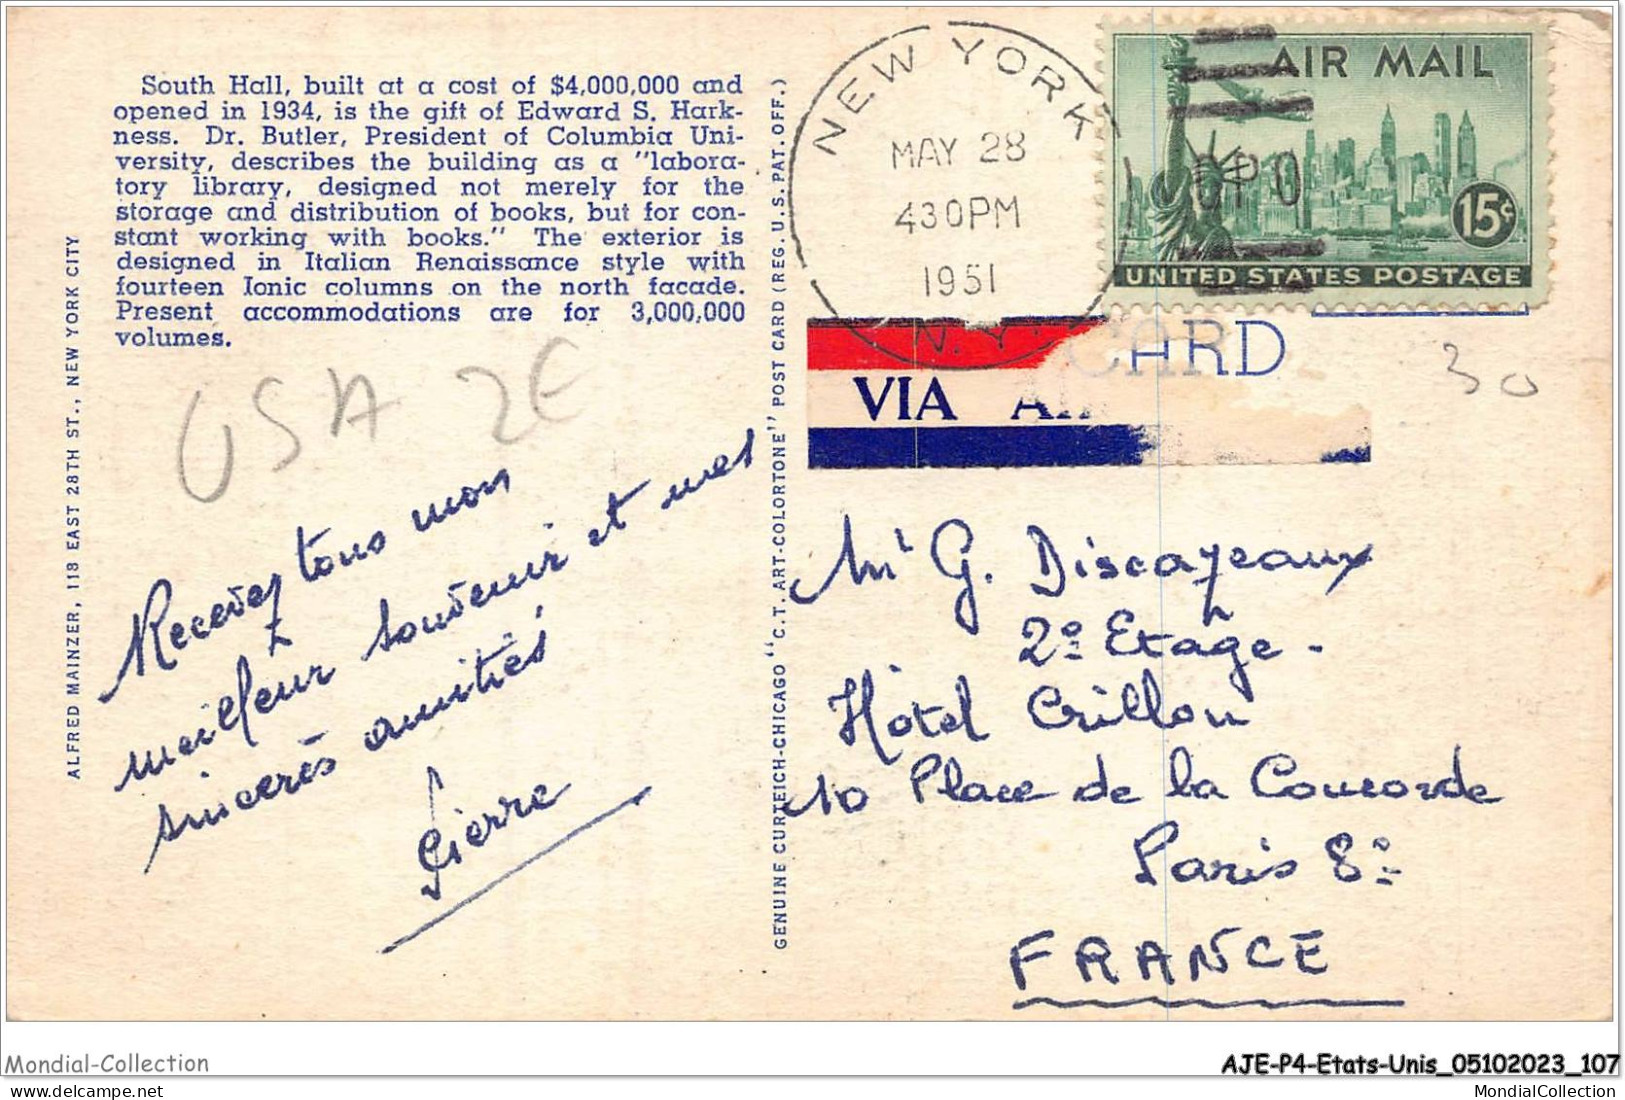 South Hall, built at a cost of $4,000,000 and
opened in 1934, is the gift of Edward S. Hark-
ness. Dr. Butler, President of Columbia Uni-
versity, describes the building as a "labora-
tory library, designed not merely for the
storage and distribution of books, but for con-
stant working with books." The exterior is
designed in Italian Renaissance style with
fourteen Ionic columns on the north facade.
Present accommodations are for 3,000,000
volumes.
ALFRED MAINZER, 118 EAST 28TH ST., NEW YORK CITY
USA 2E
Recevez tous mon
meilleur souvenir et mes
sincères amitiés
Pierre
GENUINE CURTEICH-CHICAGO "C.T. ART-COLORTONE" POST CARD (REG. U.S. PAT. OFF.)
NEW YORK
MAY 28
430PM
1951
N.Y.
AIR MAIL
GPO
15¢
UNITED STATES POSTAGE
CARD
VIA AIR
30
Mr G. Discazeaux
2º Etage.
Hôtel Crillon
10 Place de la Concorde
Paris 8º
FRANCE
Mondial-Collection
AJE-P4-Etats-Unis_05102023_107
MondialCollection
MondialCollection